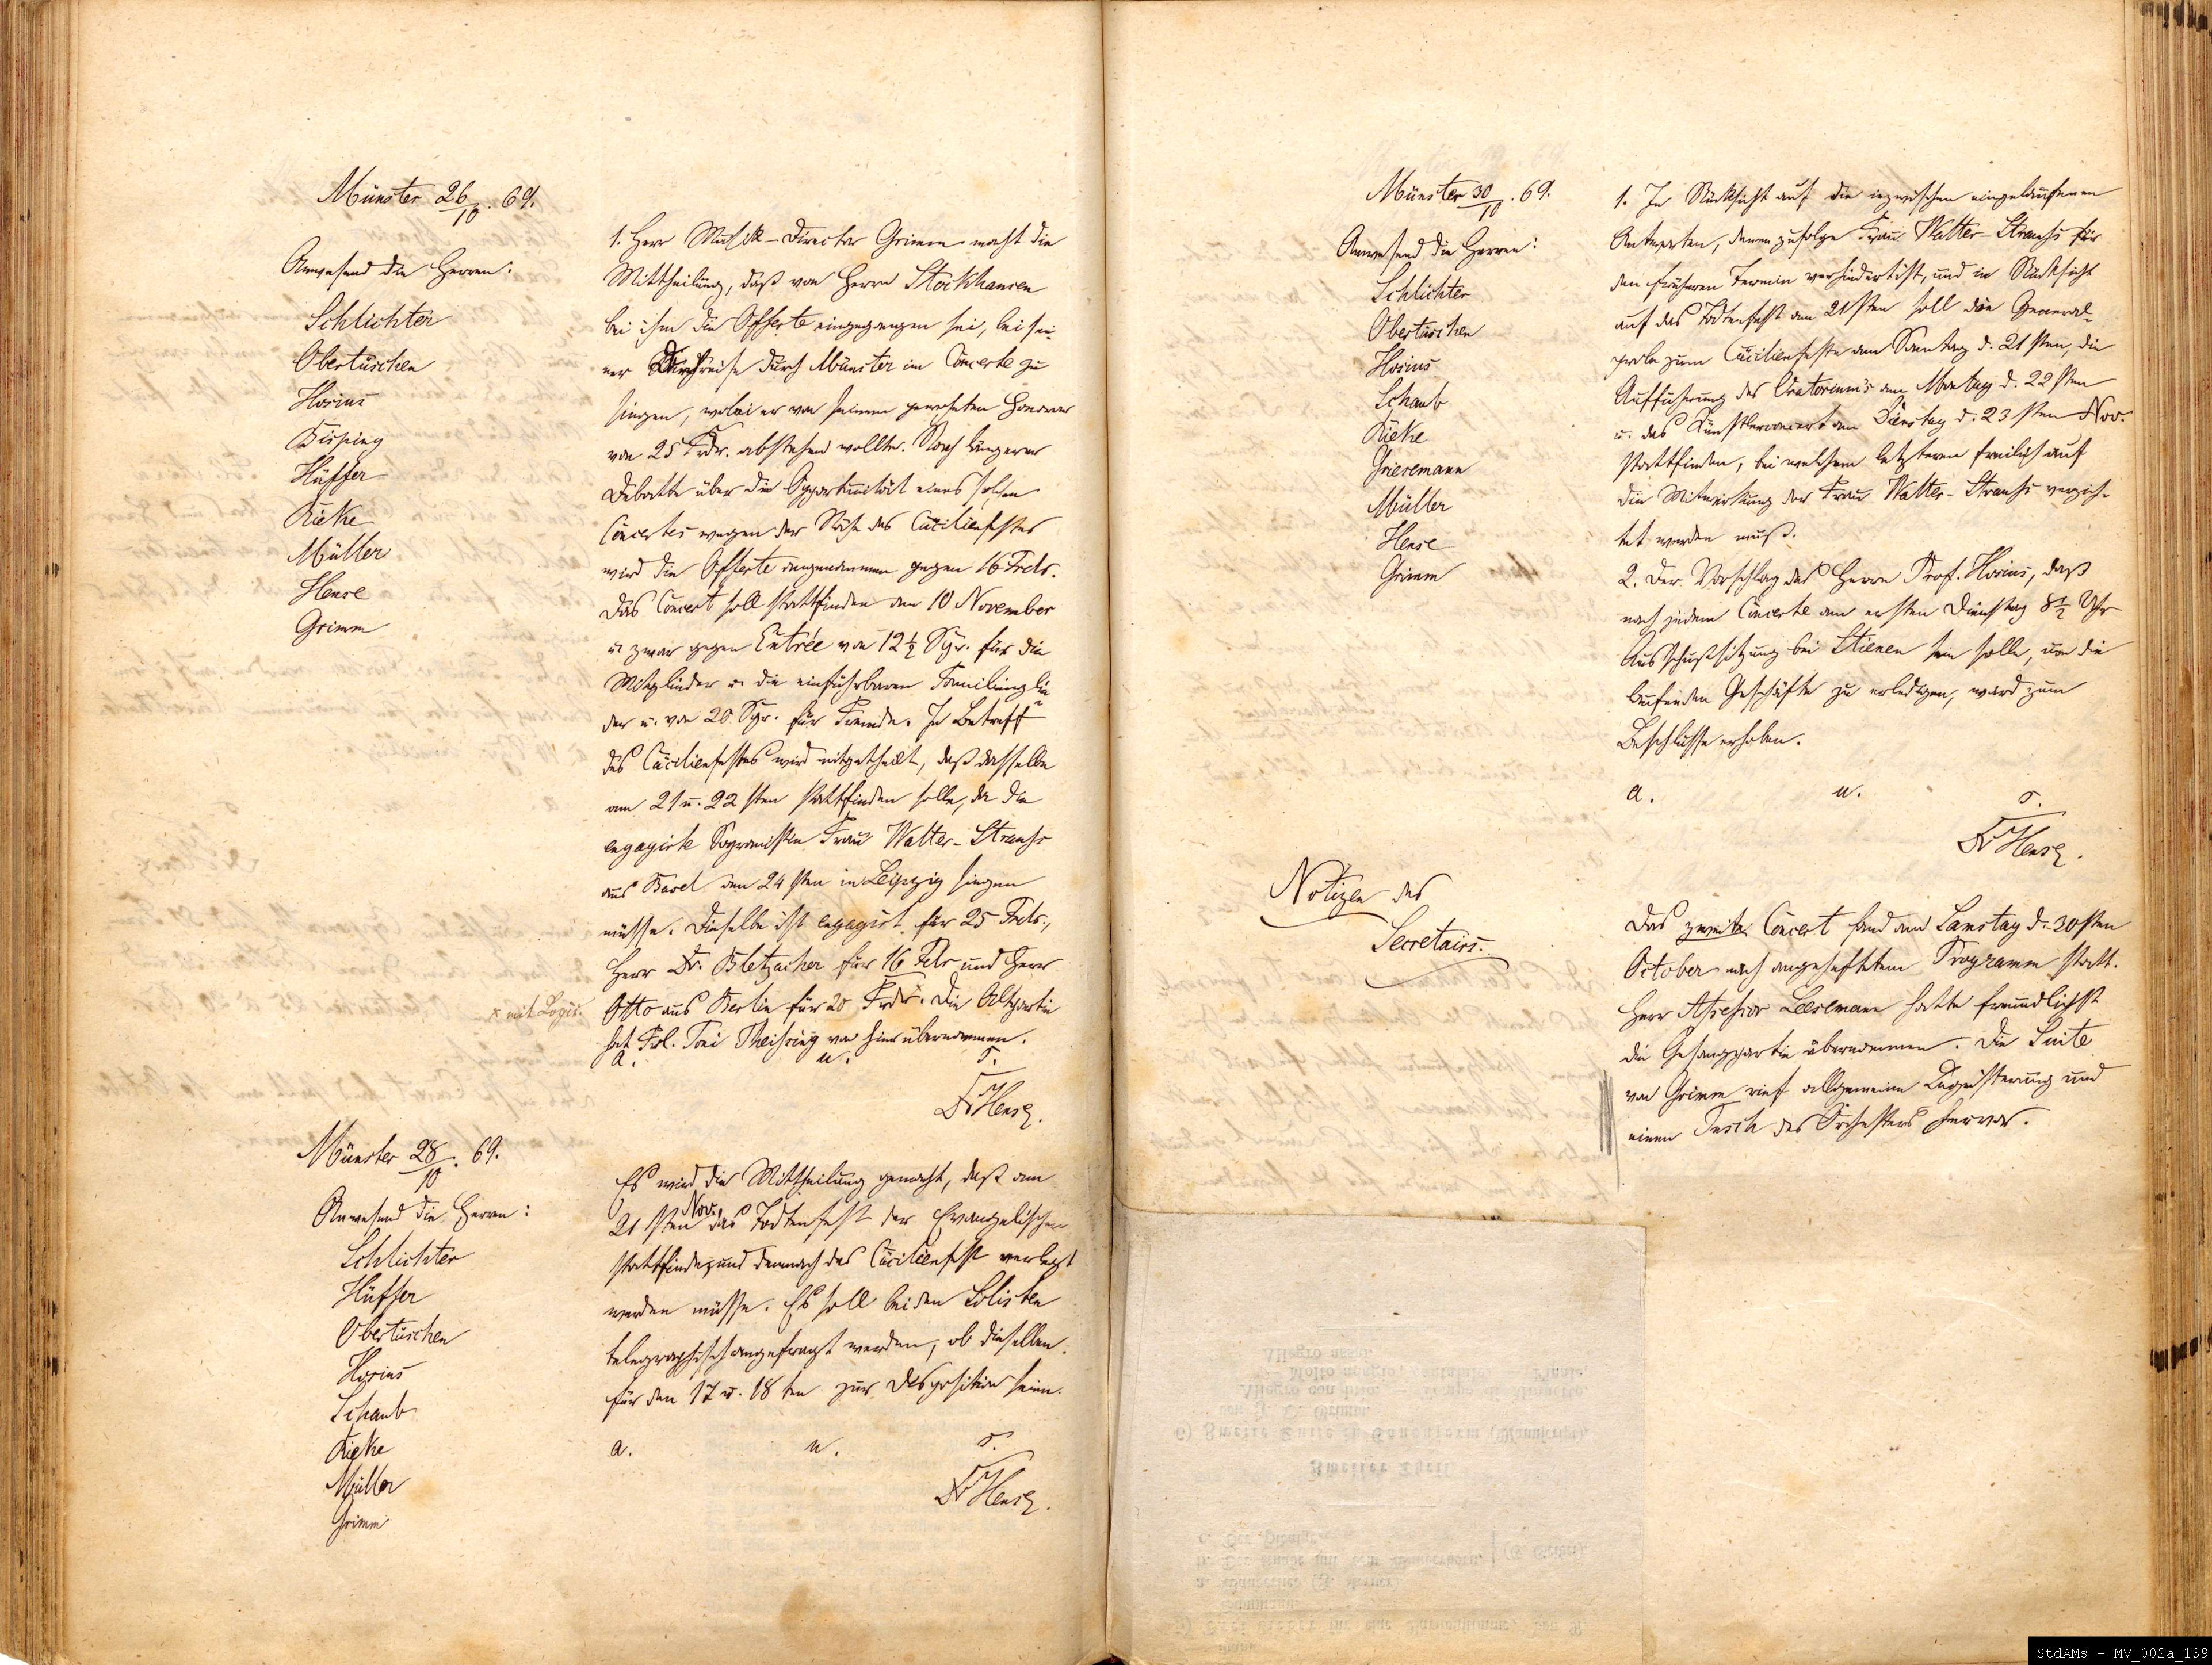 Münster 26/10. 69.
Anwesend die Herren:
Schlichter
Obertüschen
Hosius
Bisping
Hüffer
Rieke
Müller
Hense
Grimm
1. Herr Musik-Director Grimm macht die
Mittheilung, daß von Herrn Stockhausen
bei ihm die Offerte eingegangen sei, bei sei-
ner Durchreise durch Münster im Concerte zu
singen, wobei er von seinem gewohnten Honorar
von 25 Frdr. abstehen wollte. Nach längerer
Debatte über die Opportunität eines solchen
Concertes wegen der Nähe des Cäcilienfestes
wird die Offerte angenommen gegen 16 Frdr.
Das Concert soll stattfinden am 10 November
u zwar gegen Entrée von 12½ Sgr. für die
Mitglieder u. die einführbaren Familienglie
der u. von 20 Sgr. für Fremde. In Betreff
des Cäcilienfestes wird mitgetheilt, daß dasselbe
am 21 u. 22 sten stattfinden solle, da die
engagirte Sopranistin Frau Walter-Strauss
aus Basel am 24 sten in Leipzig singen
müsse. Dieselbe ist engagirt für 25 Frdr.,
Herr Dr. Bletzacher für 16 Fdr und Herr
x mit Logis.
Otto aus Berlin für 20 Frdr. Die Altpartie
hat Frl. Toni Theissing von hier übernommen.
a. u. s.
Dr Hense.
Münster 28/10. 69.
Anwesend die Herren:
Schlichter
Hüffer
Obertüschen
Hosius
Schaub
Rieke
Müller
Grimm
Es wird die Mittheilung gemacht, daß am
21 sten Nov. das Todtenfest der Evangelischen
stattfinde, und demnach das Cäcilienfest verlegt
werden müsse. Es soll bei den Solisten
telegraphisch angefragt werden, ob dieselben
für den 17 u. 18 ten zur Disposition seien.
a. u. s.
Dr Hense.
Münster 30/10. 69.
Anwesend die Herren:
Schlichter
Obertüschen
Hosius
Schaub
Rieke
Griesemann
Müller
Hense
Grimm
1. In Rücksicht auf die inzwischen eingelaufenen
Antworten, denen zufolge Frau Walter-Strauss für
den früheren Termin verhindert ist, und in Rücksicht
auf das Todtenfest am 21sten soll die General-
probe zum Cäcilienfeste am Sonntag d. 21sten, die
Aufführung des Oratorium's am Montag d. 22sten
u. das Künstlerconcert am Dienstag d. 23sten Nov.
stattfinden, bei welchem letzteren freilich auf
die Mitwirkung der Frau Walter-Strauss verzich-
tet werden muß.
2. Der Vorschlag des Herrn Prof. Hosius, daß
nach jedem Concerte am ersten Dienstag 8½ Uhr
Ausschußsitzung bei Stienen sein solle, um die
laufenden Geschäfte zu erledigen, ward zum
Beschlusse erhoben.
a. u. s.
Dr Hense.
Notizen des
Secretairs.
Das zweite Concert fand am Samstag d. 30sten
October nach angeheftetem Programm statt.
Herr Assessor Leesemann hatte freundlichst
die Gesangpartie übernommen. Die Suite
von Grimm rief allgemeine Begeisterung und
einen Tusch des Orchesters hervor.
StdAMs - MV_002a_139